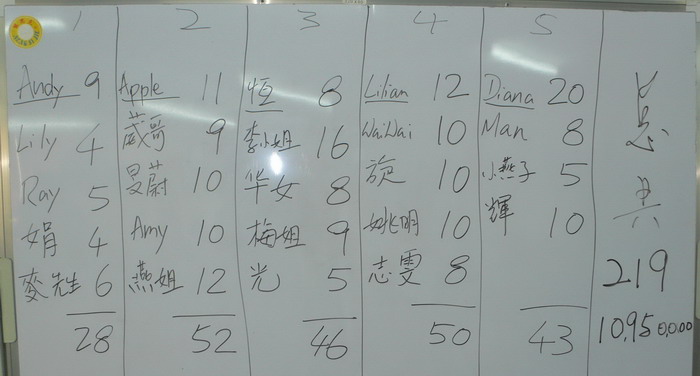 1
Andy 9
Lily 4
Ray 5
娟 4
麥先生 6
28
2
Apple 11
葳哥 9
旻蔚 10
Amy 10
燕姐 12
52
3
恒 8
李小姐 16
华女 8
梅姐 9
光 5
46
4
Lilian 12
WaiWai 10
旋 10
姚明 10
志雯 8
50
5
Diana 20
Man 8
小燕子 5
輝 10
43
共
219
10,950,0.00